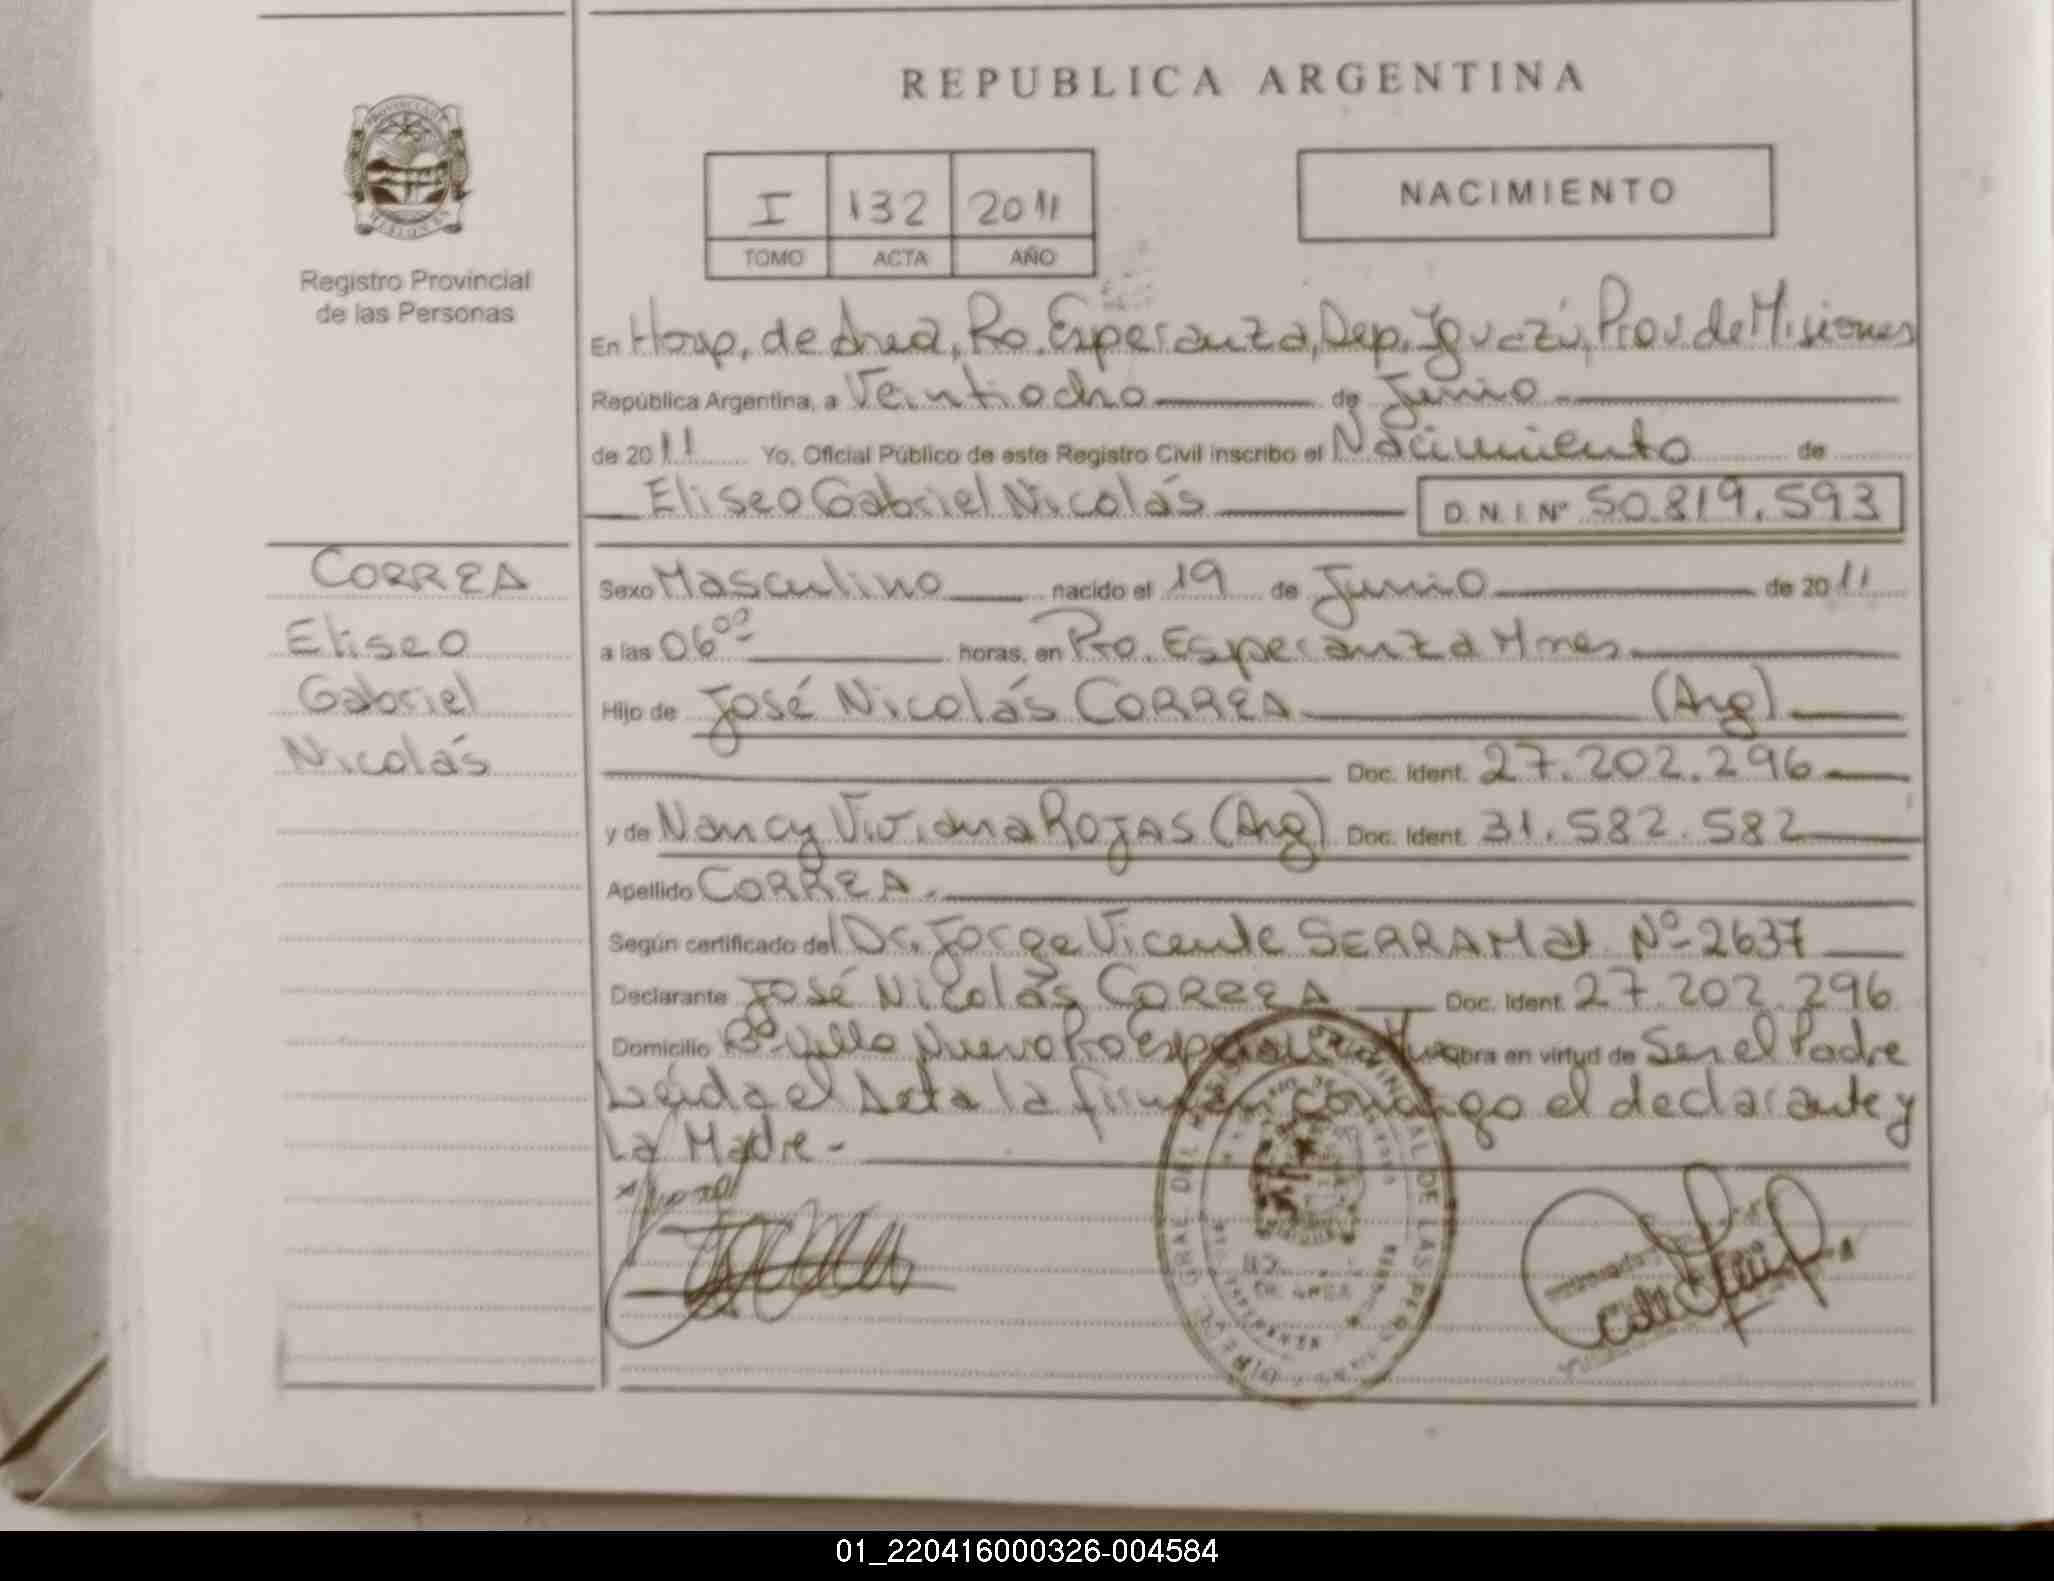 REPUBLICA ARGENTINA
I 132 2011
TOMO ACTA AÑO
NACIMIENTO
Registro Provincial
de las Personas
En Hosp. de Area, Pto. Esperanza, Dep. Iguazú, Prov. de Misiones
República Argentina, a Veintiocho de Junio
de 2011 Yo, Oficial Público de este Registro Civil inscribo el Nacimiento de
Eliseo Gabriel Nicolás D.N.I. Nº 50.819.593
CORREA
Eliseo
Gabriel
Nicolás
Sexo Masculino nacido el 19 de Junio de 2011
a las 06°° horas, en Pto. Esperanza Mnes
Hijo de José Nicolás CORREA (Arg)
Doc. Ident. 27.202.296
y de Nancy Viviana ROJAS (Arg) Doc. Ident. 31.582.582
Apellido CORREA.
Según certificado del Dr. Jorge Vicente SERRAMat Nº 2637
Declarante José Nicolás CORREA Doc. Ident. 27.202.296
Domicilio Bº Villa Nueva Pto Esperanza obra en virtud de Ser el Padre
Leída el Acta la firman conmigo el declarante y
La Madre -
01_220416000326-004584